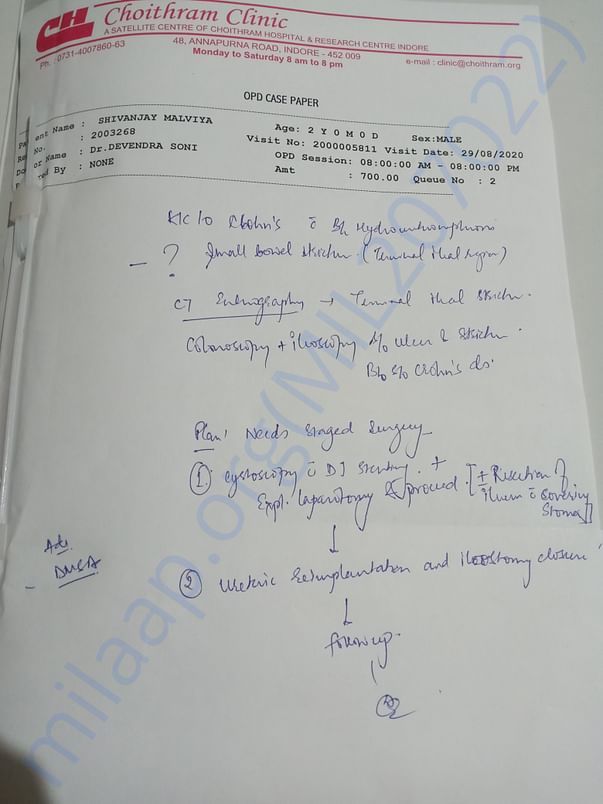 CH Choithram Clinic
A SATELLITE CENTRE OF CHOITHRAM HOSPITAL & RESEARCH CENTRE INDORE
48, ANNAPURNA ROAD, INDORE - 452 009
Ph. : 0731-4007860-63
Monday to Saturday 8 am to 8 pm
e-mail : clinic@choithram.org
OPD CASE PAPER
ent Name : SHIVANJAY MALVIYA Age: 2 Y 0 M 0 D Sex:MALE
No. : 2003268 Visit No: 2000005811 Visit Date: 29/08/2020
or Name : Dr.DEVENDRA SONI OPD Session: 08:00:00 AM - 08:00:00 PM
ed By : NONE Amt : 700.00 Queue No : 2
K/c/o Crohn's c̄ B/L Hydrouretronephrosis
– ? Small bowel stricture (Terminal ileal region)
CT Enterography → Terminal ileal stricture.
Colonoscopy + ileoscopy s/o ulcer & stricture.
s/o Crohn's ds.
Plan: Needs Staged Surgery
① Cystoscopy c̄ DJ stenting. +
Expl. laparotomy & proceed. [± Resection of
ileum c̄ covering
Stoma]
↓
Adv.
– DMSA
② Ureteric Reimplantation and ileostomy closure
↓
follow up.
milaap.org(MIL2070722)